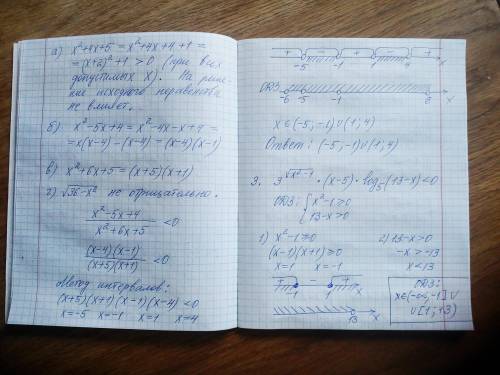 а) x²+4x+5 = x²+4x+4+1 =
= (x+2)²+1 > 0 (при всех
допустимых x). На реше-
ние исходного неравенства
не влияет.
б) x²-5x+4 = x²-4x-x+4 =
= x(x-4)-(x-4) = (x-4)(x-1)
в) x²+6x+5 = (x+5)(x+1)
г) √36-x² не отрицательно.
x²-5x+4
x²+6x+5 <0
(x-4)(x-1)
(x+5)(x+1) <0
Метод интервалов:
(x+5)(x+1)(x-1)(x-4) <0
x=-5 x=-1 x=1 x=4
+ - + - +
-5 -1 1 4 x
ОДЗ:
-6 -5 -1 6 x
x∈(-5;-1)∪(1;4)
Ответ: (-5;-1)∪(1;4)
3. 3^√x²-1 · (x-5) · log₅(13-x)<0
ОДЗ: { x²-1≥0
13-x>0
1) x²-1≥0 2) 13-x>0
(x-1)(x+1)≥0 -x>-13
x=1 x=-1 x<13
+ - +
-1 1 x
13 x
ОДЗ:
x∈(-∞;-1]∪
∪[1;13)